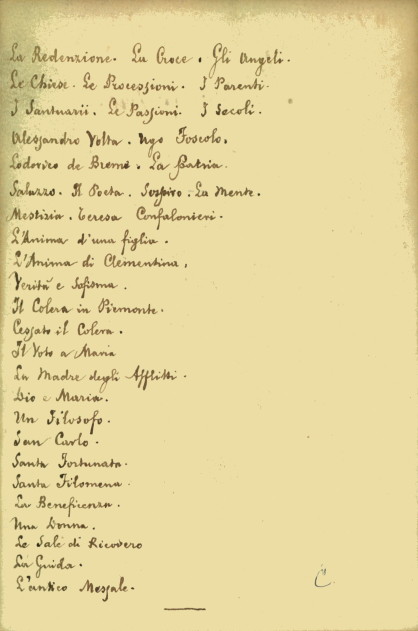 La Redenzione. La Croce. Gli Angeli.
Le Chiese. Le Processioni. I Parenti.
I Santuarii. Le Passioni. I Secoli.
Alessandro Volta. Ugo Foscolo.
Lodovico de Breme. La Patria.
Saluzzo. Il Poeta. Sospiro. La Mente.
Mestizia. Teresa Confalonieri.
L'Anima d'una figlia.
L'Anima di Clementina,
Verità e Sofisma.
Il Colera in Piemonte.
Cessato il Colera.
Il Voto a Maria
La Madre degli Afflitti.
Dio e Maria.
Un Filosofo.
San Carlo.
Santa Fortunata.
Santa Filomena.
La Beneficenza.
Una Donna.
Le Sale di Ricovero
La Guida.
L'antico Messale.